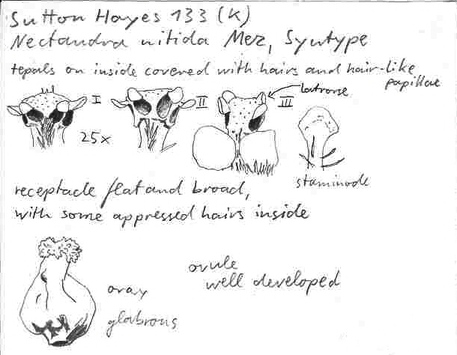 Sutton Hayes 133 (K)
Nectandra nitida Mez, Syntype
tepals on inside covered with hairs and hair-like papillae
I II III latrorse
25x
staminode
receptacle flat and broad,
with some appressed hairs inside
ovule
well developed
ovary
glabrous